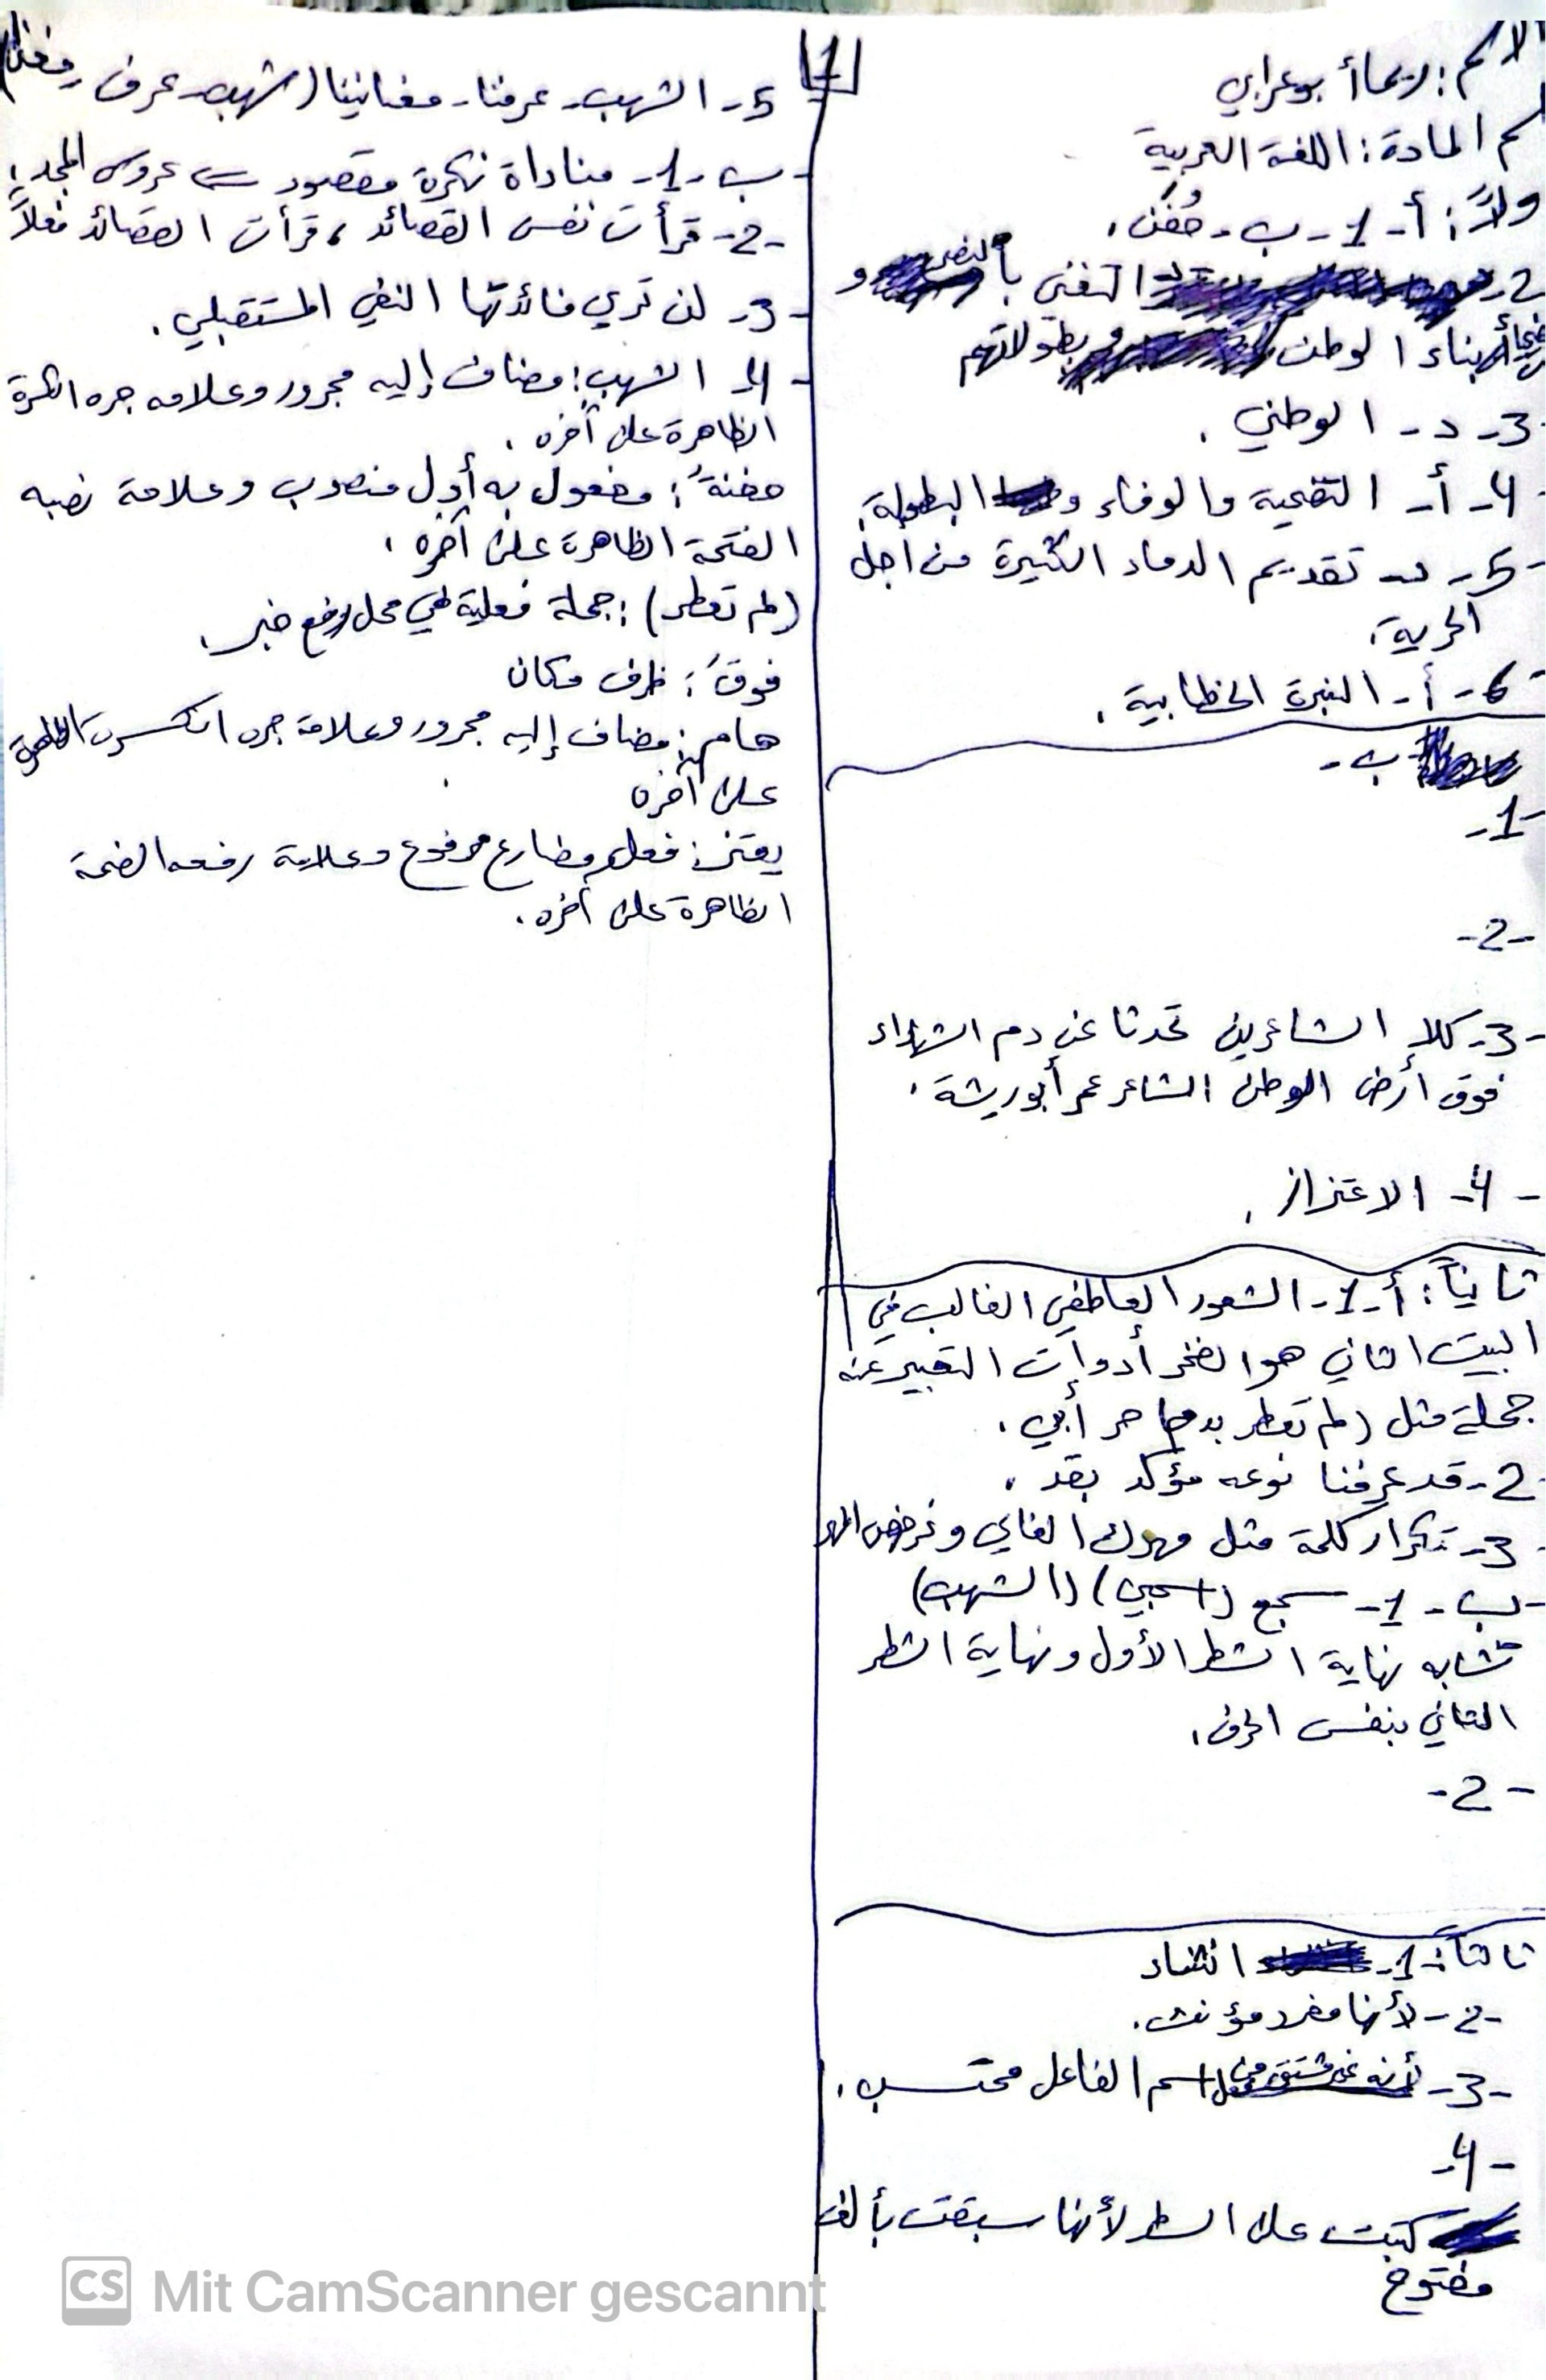 الاسم: ريما أبو عرابي
اسم المادة: اللغة العربية
أولاً: أ-1- ب- حُفَن.
2- التغني بالنصر و
أبناء الوطن بطولاتهم
3- د- الوطني.
4- أ- التضحية والوفاء و البطولة.
5- د- تقديم الدماء الكثيرة من أجل
الحرية.
6- أ- النبرة الخطابية.
ب-
-1-
-2-
-3- كلا الشاعرين تحدثا عن دم الشهداء
فوق أرض الوطن الشاعر عمر أبو ريشة.
-4- الاعتزاز.
ثانياً: أ-1- الشعور العاطفي الغالب في
البيت الثاني هو الفخر أدوات التعبير عنه
جملة مثل (لم تعطر بدما حر أبي.
2- قد عرفنا نوعه مؤكد بقد.
3- تكرار كلمة مثل مهرك الغالي وغرضه المهر
-ب-1- سجع (اسحبي) (الشهب)
تشابه نهاية الشطر الأول ونهاية الشطر
الثاني بنفس الحرف.
-2-
ثالثاً: -1- النساء
-2- لأنها مفرد مؤنث.
-3- لأنه غير مشتق من اسم الفاعل محتسب.
-4-
كتبت على السطر لأنها سبقت بألف
مفتوح
[1]
5- الشهب- عرفنا- مغانينا (شهب- عرف
-ب-1- مناداة نكرة مقصود ⇐ عروس المجد:
-2- قرأت نفس القصائد، قرأت القصائد فعلاً
-3- لن تري فائدتها النفي المستقبلي.
-4- الشهب: مضاف إليه مجرور وعلامه جره الكسرة
الظاهرة على آخره.
حفنةً: مفعول به أول منصوب وعلامة نصبه
الفتحة الظاهرة على آخره.
(لم تعطر): جملة فعلية في محل رفع خبر.
فوقَ: ظرف مكان
هام: مضاف إليه مجرور وعلامة جره الكسرة الظاهرة
على آخره
يعتز: فعل مضارع مرفوع وعلامة رفعه الضمة
الظاهرة على آخره.
CS Mit CamScanner gescannt